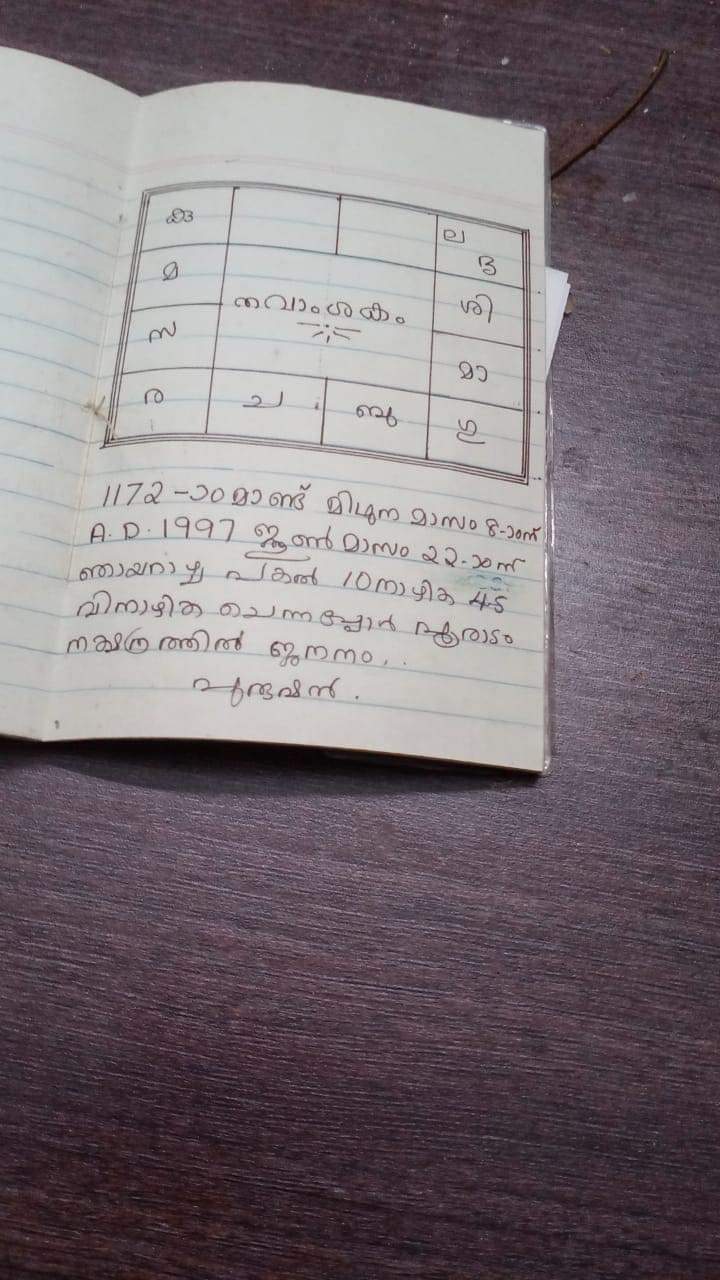 കു
ല
ദ്ര
മ
ശി
നവാംശകം
സ
മാ
ര
ച
ബു
ഗു
1172-ാമാണ്ട് മിഥുന മാസം 8-ാന്
A.D. 1997 ജൂൺ മാസം 22-ാന്
ഞായറാഴ്ച പകൽ 10 നാഴിക 45
വിനാഴിക ചെന്നപ്പോൾ പൂരാടം
നക്ഷത്രത്തിൽ ജനനം..
പുരുഷൻ.